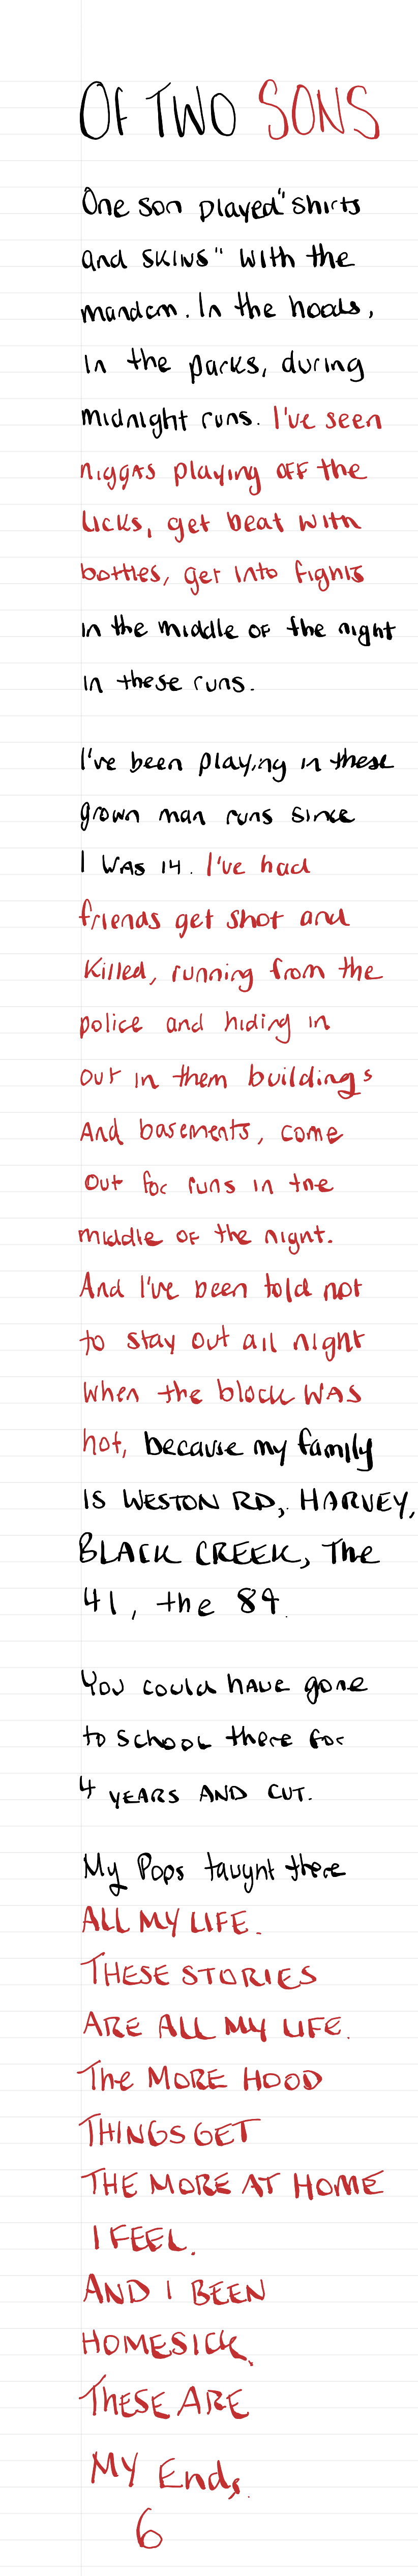 OF TWO SONS
One son played "shirts
and SKINS" with the
mandem. In the hoods,
In the parks, during
midnight runs. I've seen
niggas playing off the
licks, get beat with
bottles, get into fights
in the middle of the night
in these runs.
I've been playing in these
grown man runs since
I WAS 14. I've had
friends get shot and
Killed, running from the
police and hiding in
out in them buildings
And basements, come
Out for runs in the
middle of the night.
And I've been told not
to stay out all night
when the block WAS
hot, because my family
IS WESTON RD, HARVEY,
BLACK CREEK, The
41, the 89.
You could have gone
to school there for
4 YEARS AND CUT.
My Pops taught there
ALL MY LIFE.
THESE STORIES
ARE ALL MY LIFE.
The MORE HOOD
THINGS GET
THE MORE AT HOME
I FEEL.
AND I BEEN
HOMESICK.
THESE ARE
MY Ends.
6